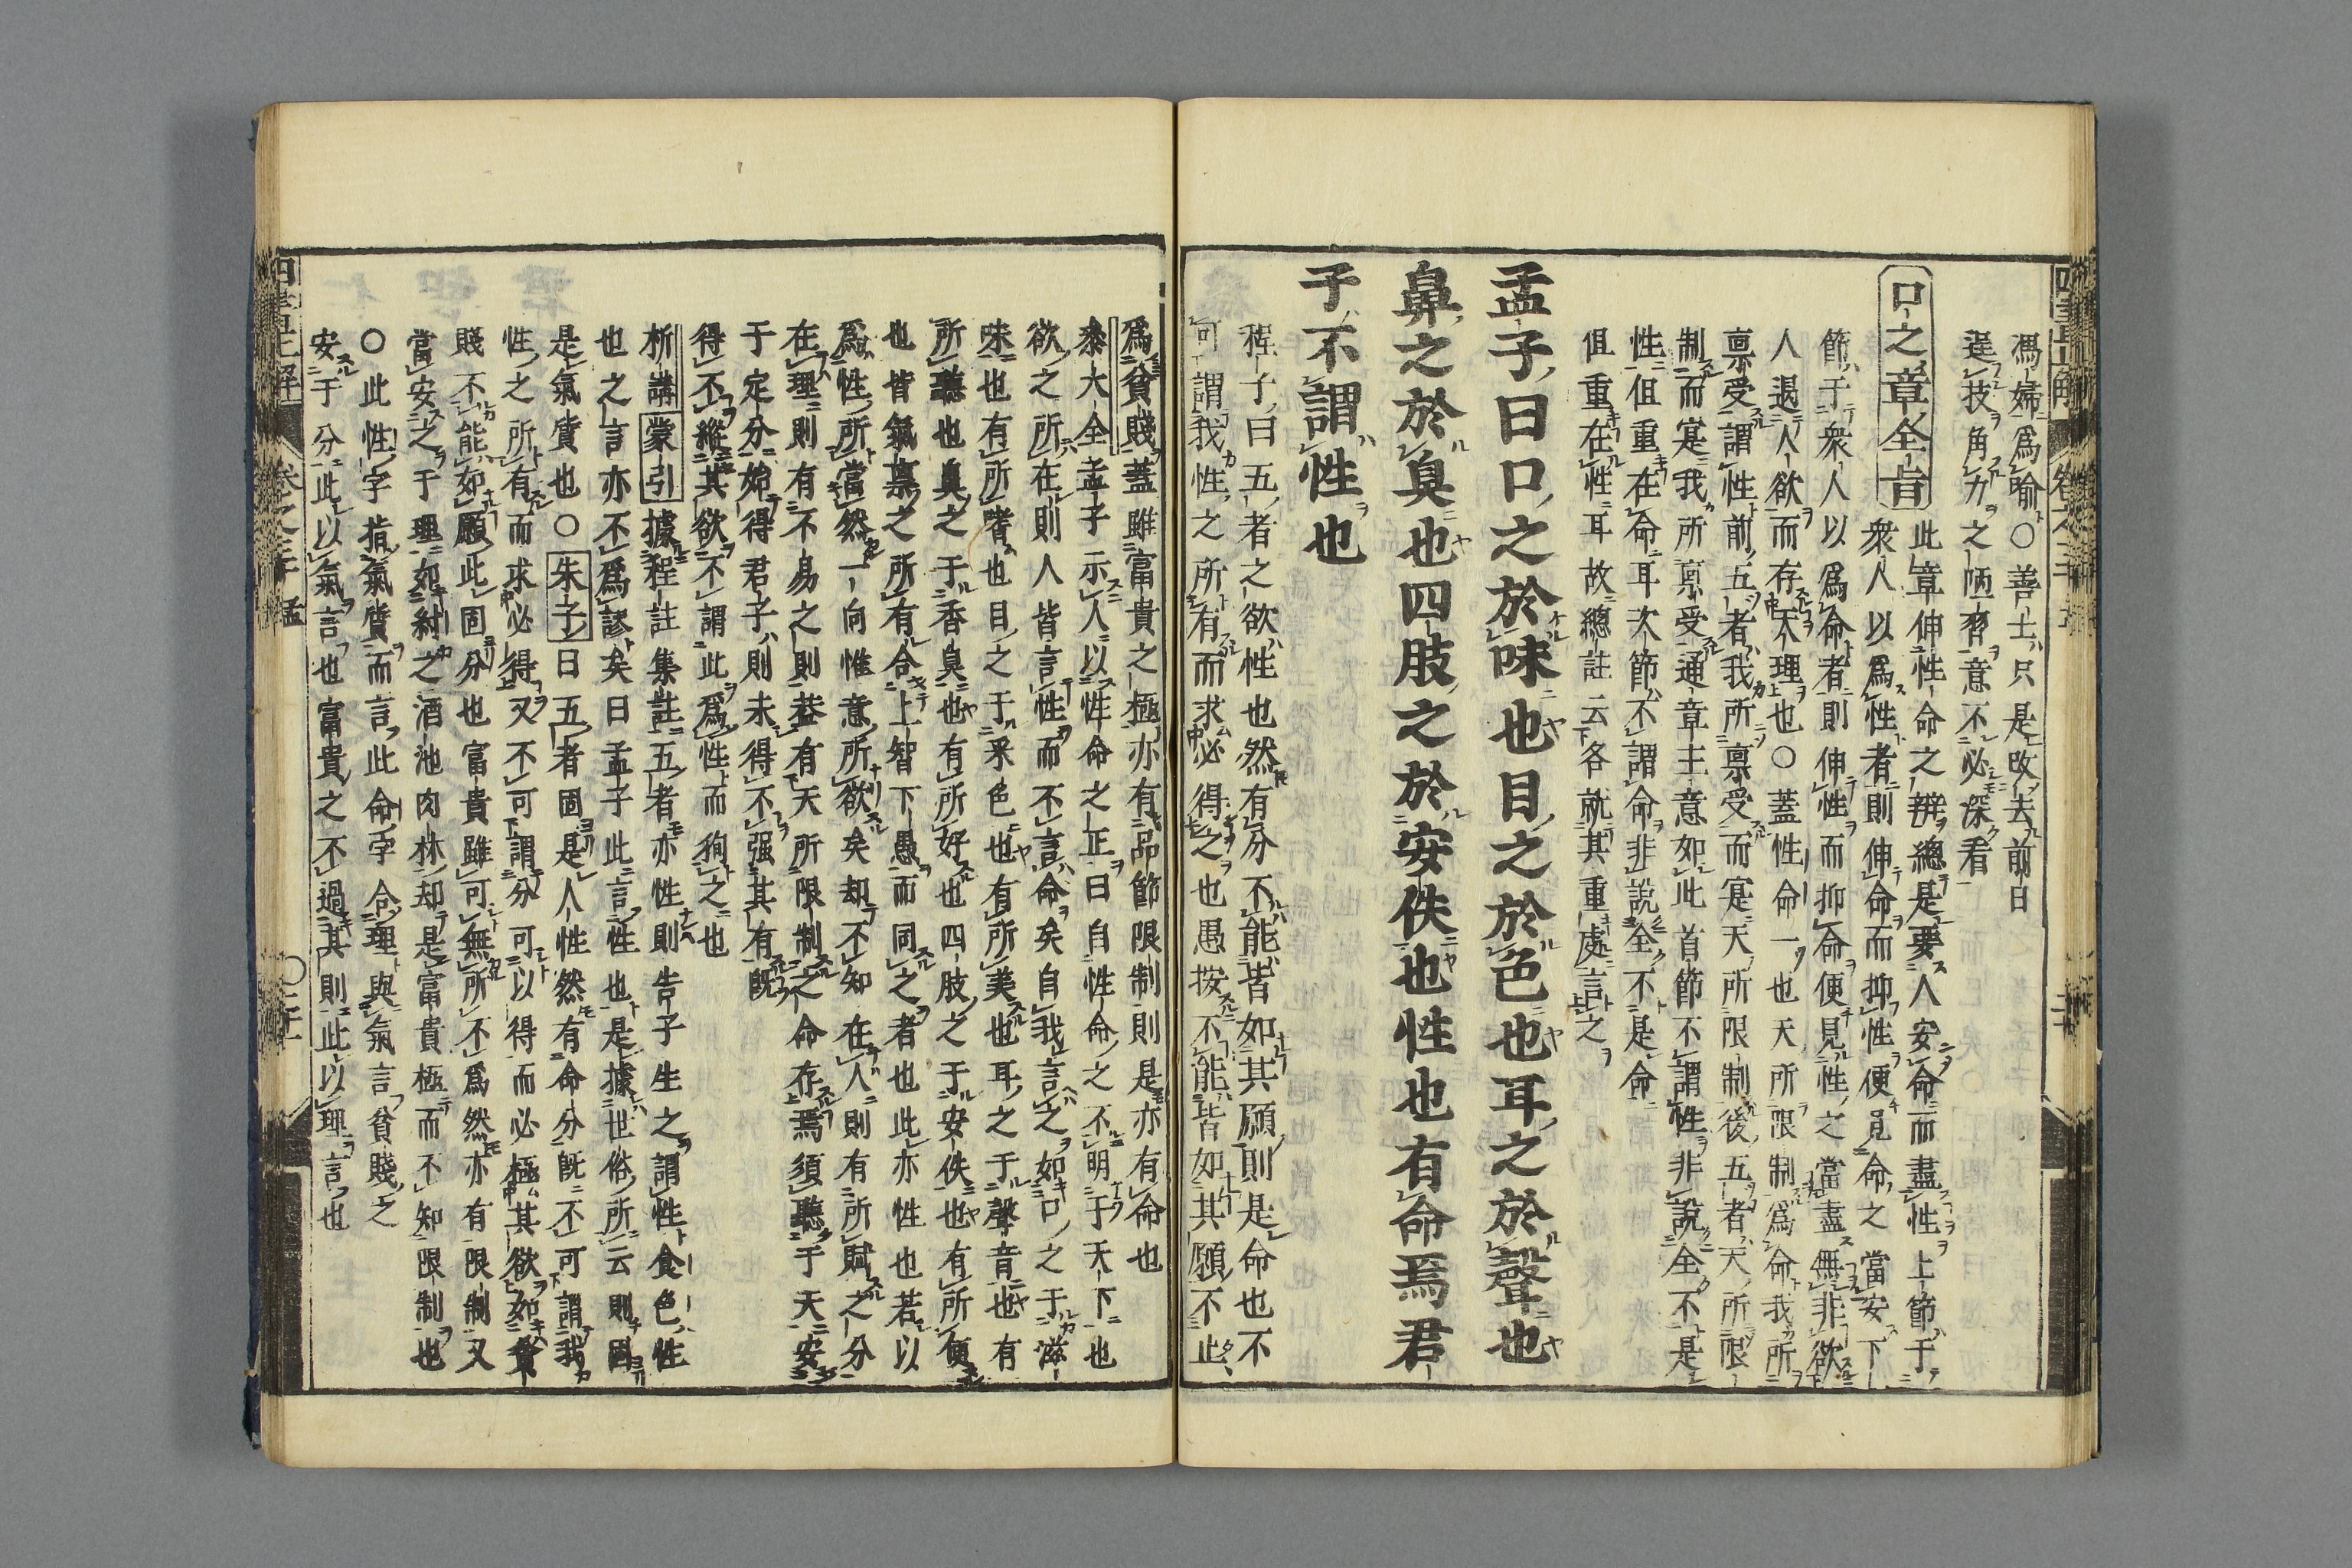 馮婦爲喻〇善士只是改去前日
逞技角力之陋習意不必深看
口之章全旨
此章伸性命之辨總是要人安命而盡性上節于
衆人以爲性者則伸命而抑性便見命之當安下
節于衆人以爲命者則伸性而抑命便見性之當盡無非欲
人遏人欲而存天理也〇蓋性命一也天所限制爲命我所
禀受謂性前五者我所禀受而寔天所限制後五者天所限
制而寔我所禀受通章主意如此首節不謂性非說全不是
性但重在命耳次節不謂命非說全不是命
但重在性耳故總註云各就其重處言之
孟子曰口之於味也目之於色也耳之於聲也
鼻之於臭也四肢之於安佚也性也有命焉君
子不謂性也
程子曰五者之欲性也然有分不能皆如其願則是命也不
可謂我性之所有而求必得之也愚按不能皆如其願不止
爲貧賤蓋雖富貴之極亦有品節限制則是亦有命也
叅大全孟子示人以性命之正曰自性命之不明于天下也
欲之所在則人皆言性而不言命矣自我言之如口之于滋
味也有所嗜也目之于釆色也有所美也耳之于聲音也有
所聽也臭之于香臭也有所好也四肢之于安佚也有所便
也皆氣禀之所有合上智下愚而同之者也此亦性也若以
爲性所當然一向惟意所欲矣却不知在人則有所賦之分
在理則有不易之則葢有天所限制之命存焉須聽于天安
于定分始得君子則未得不强其有旣
得不縱其欲不謂此爲性而狥之也
析講
蒙引
據程註集註五者亦性則告子生之謂性食色性
也之言亦不爲謬矣曰孟子此言性也是據世俗所云則固
是氣質也〇朱子曰五者固是人性然有命分旣不可謂我
性之所有而求必得又不可謂分可以得而必極其欲如貧
賤不能如願此固分也富貴雖可無所不爲然亦有限制又
當安之于理如紂之酒池肉林却是富貴極而不知限制也
〇此性字指氣質而言此命字合理與氣言貧賤之
安于分此以氣言也富貴之不過其則此以理言也